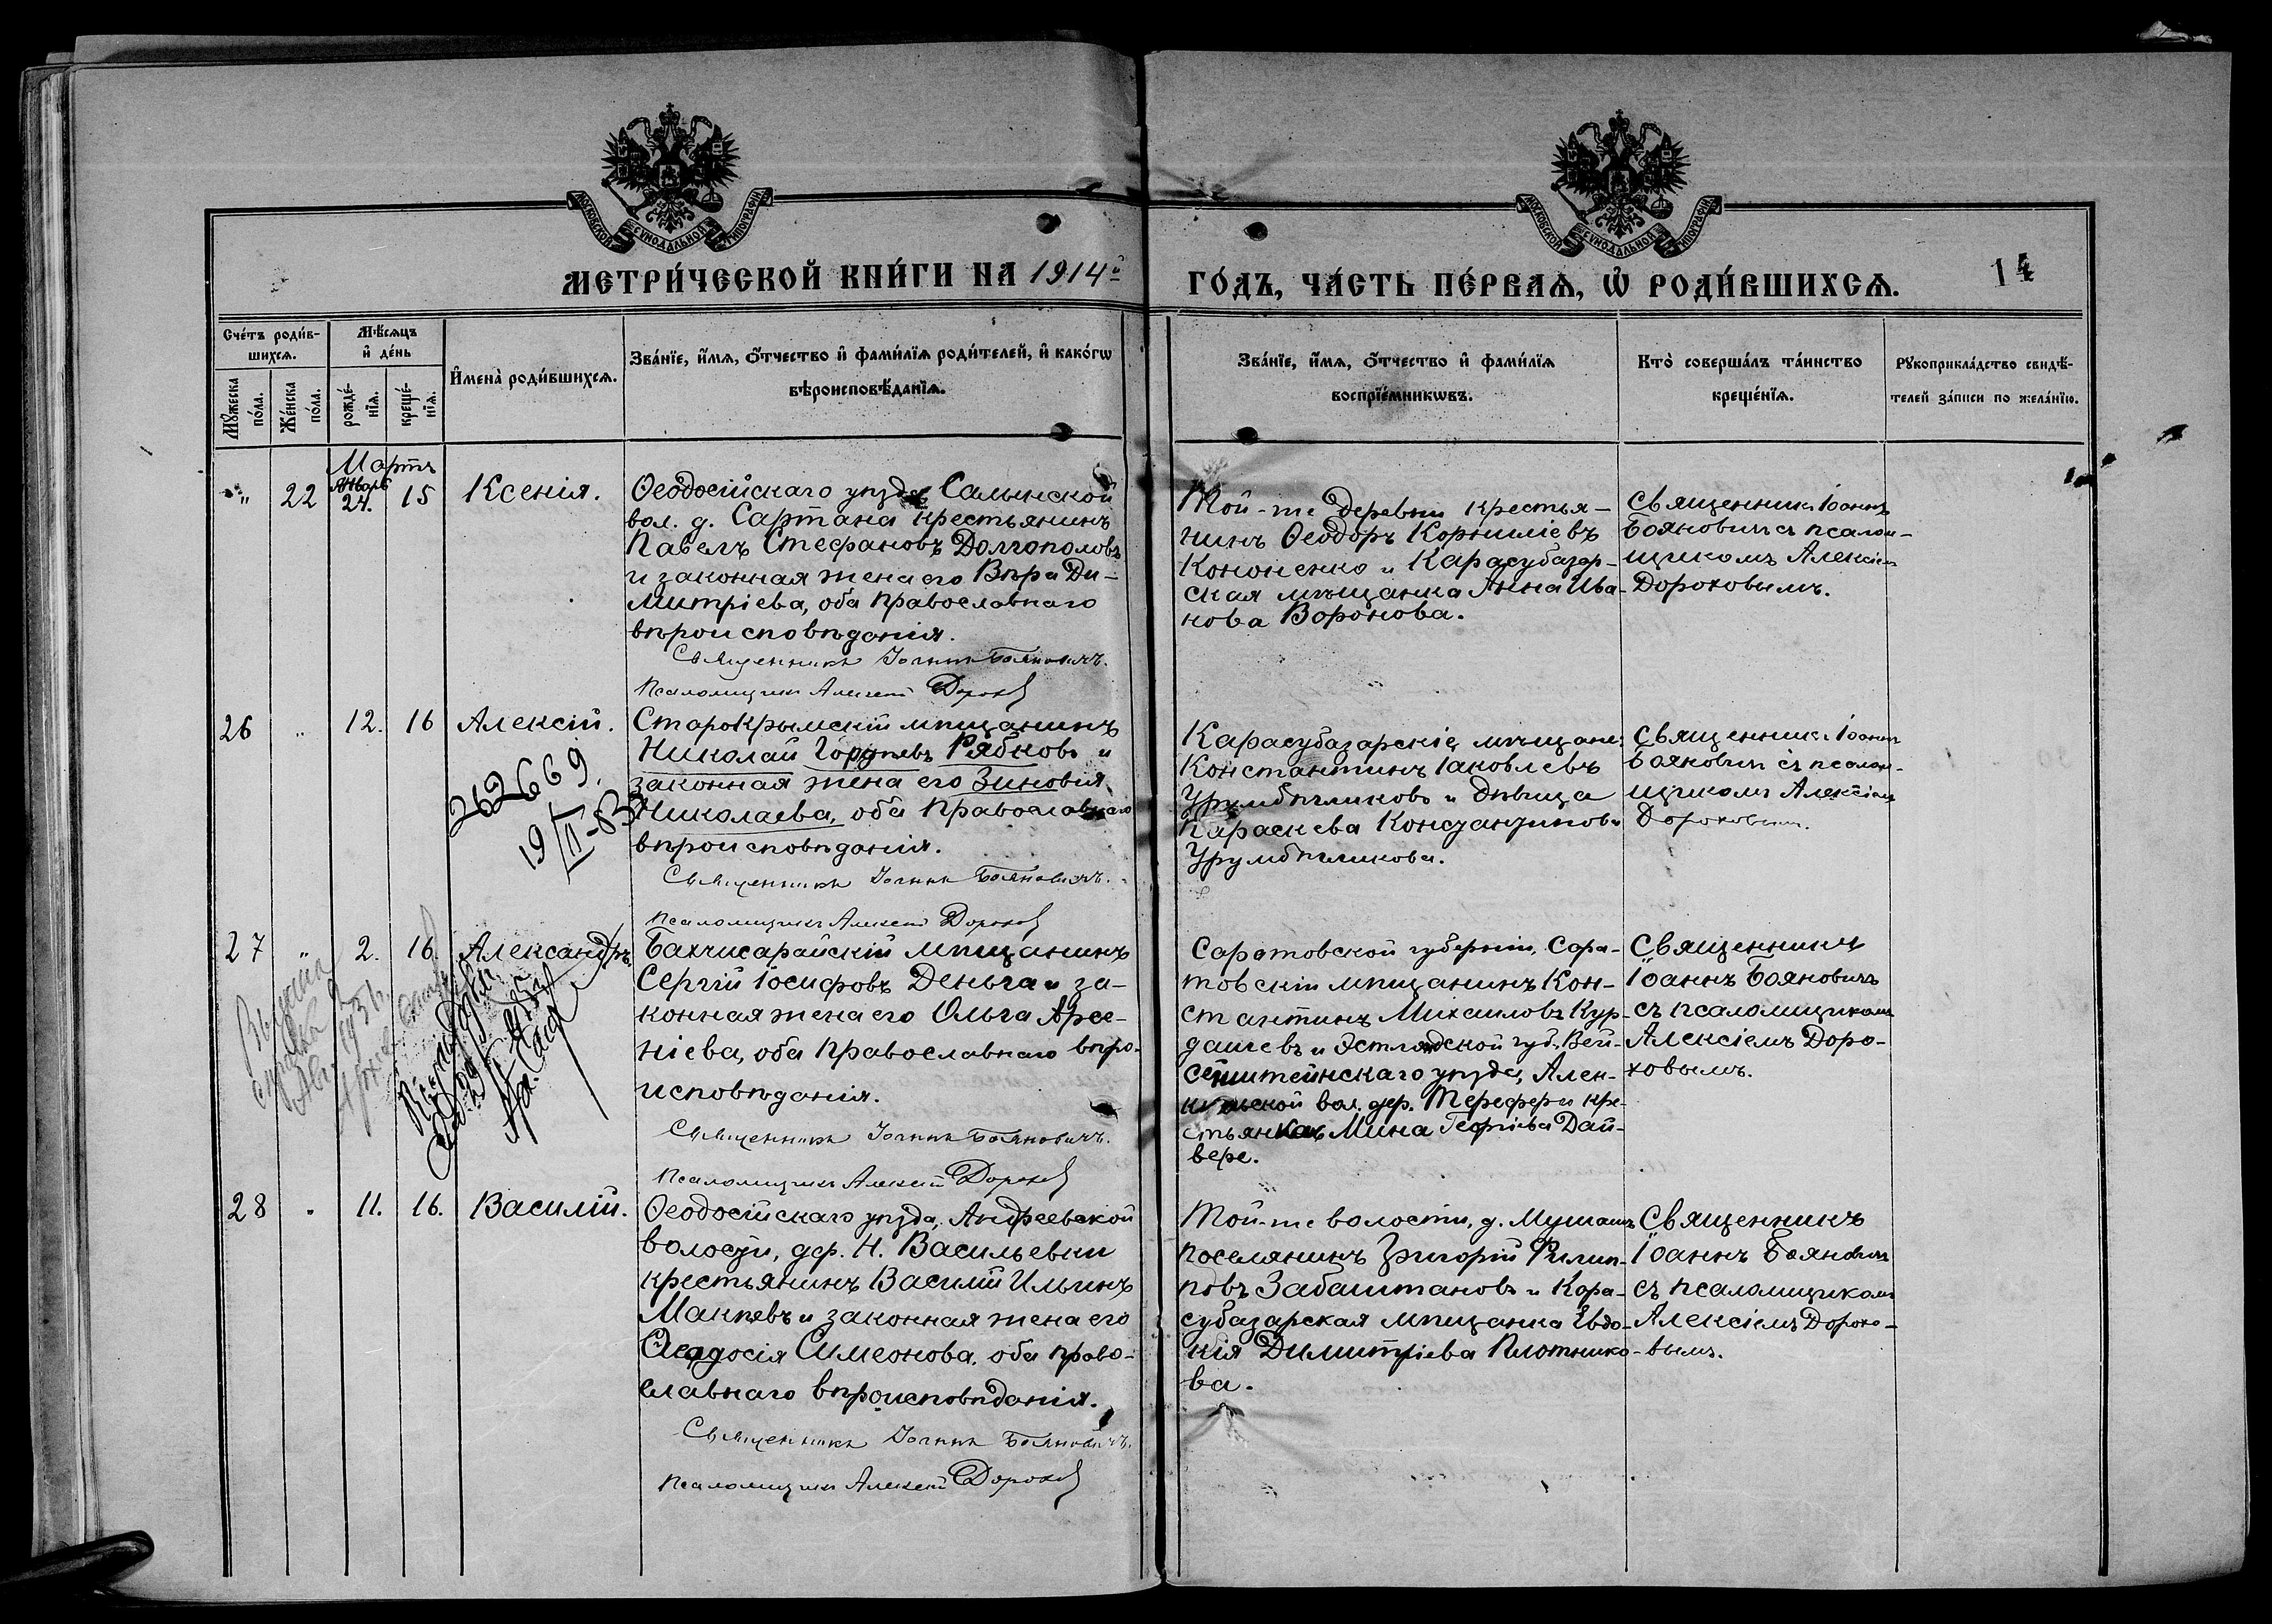 МОСКОВСКОЙ СѴНОДАЛЬНОЙ ТИПОГРАФІИ
МОСКОВСКОЙ СѴНОДАЛЬНОЙ ТИПОГРАФІИ
МЕТРИ́ЧЕСКОЙ КНИ́ГИ НА 1914й
ГО́ДЪ, ЧА́СТЬ ПЕ́РВАѦ, Ѡ҆ РОДИ́ВШИХСѦ.
14
Сче́тъ роди́в-
шихсѧ.
Мѣ́сѧцъ
и҆ де́нь
Мꙋ́жеска
по́ла.
Же́нска
по́ла.
рожде́-
нїѧ.
креще́-
нїѧ.
И҆мена̀ роди́вшихсѧ.
Зва́нїе, и҆́мѧ, ѻ҆́тчество и҆ фами́лїѧ роди́телей, и҆ како́гѡ
вѣроисповѣ́данїѧ.
Зва́нїе, и҆́мѧ, ѻ҆́тчество и҆ фами́лїѧ
воспрїе́мникѡвъ.
Кто̀ соверша́лъ та́инство
креще́нїѧ.
Рꙋкоприкла́дство свидѣ́-
телей за́писи по жела́нїю.
Мартъ
Январь
" 22 24. 15 Ксенія.
Ѳеодосійскаго уѣзда, Салынской
вол. д. Сартана крестьянинъ
Павелъ Стефановъ Долгополовъ
и законная жена его Вѣра Ди-
митріева, оба православнаго
вѣроисповѣданія.
Священникъ Іоаннъ Бояновичъ.
Псаломщикъ Алексій Дорохов
Той-же деревни крестья-
нинъ Ѳеодоръ Корниліевъ
Кононенко и Карасубазар-
ская мѣщанка Анна Ива-
нова Воронова.
Священникъ Іоаннъ
Бояновичъ съ псалом-
щикомъ Алексіемъ
Дороховымъ.
26 " 12. 16 Алексій.
262669.
19/III-83
Старокрымскій мѣщанинъ
Николай Рябковъ и
законная жена его Зиновія
Николаева, оба православнаго
вѣроисповѣданія.
Священникъ Іоаннъ Бояновичъ.
Псаломщикъ Алексій Дорохов
Карасубазарскіе мѣщане:
Константинъ Іаковлевъ
и дѣвица
Параскева Константинова
Священникъ Іоаннъ
Бояновичъ съ псалом-
щикомъ Алексіемъ
Дороховымъ.
27 " 2. 16. Александръ.
Бахчисарайскій мѣщанинъ
Сергій Іосифовъ Деньга и за-
конная жена его Ольга Арсе-
ніева, оба православнаго вѣро-
исповѣданія.
Священникъ Іоаннъ Бояновичъ.
Псаломщикъ Алексій Дорохов
Саратовской губерніи, Сара-
товскій мѣщанинъ Кон-
стантинъ Михаиловъ Кур-
дашевъ и Эстляндской губ. Вей-
сенштейнскаго уѣзда, Ален-
вол. дер. Терефери кре-
стьянка Мина Георгіева Дай-
вере.
Священникъ
Іоаннъ Бояновичъ
съ псаломщикомъ
Алексіемъ Доро-
ховымъ.
28 " 11. 16. Василій.
Ѳеодосійскаго уѣзда, Андреевской
волости, дер. Н. Васильевки
крестьянинъ Василій Ильинъ
Макѣевъ и законная жена его
Ѳеодосія Симеонова, оба право-
славнаго вѣроисповѣданія.
Священникъ Іоаннъ Бояновичъ.
Псаломщикъ Алексій Дорохов
Той-же волости, д.
поселянинъ Григорій Филип-
повъ Забаштановъ и Кара-
субазарская мѣщанка Евдо-
кія Димитріева Плотнико-
ва.
Священникъ
Іоаннъ Бояновичъ
съ псаломщикомъ
Алексіемъ Дорохо-
вымъ.